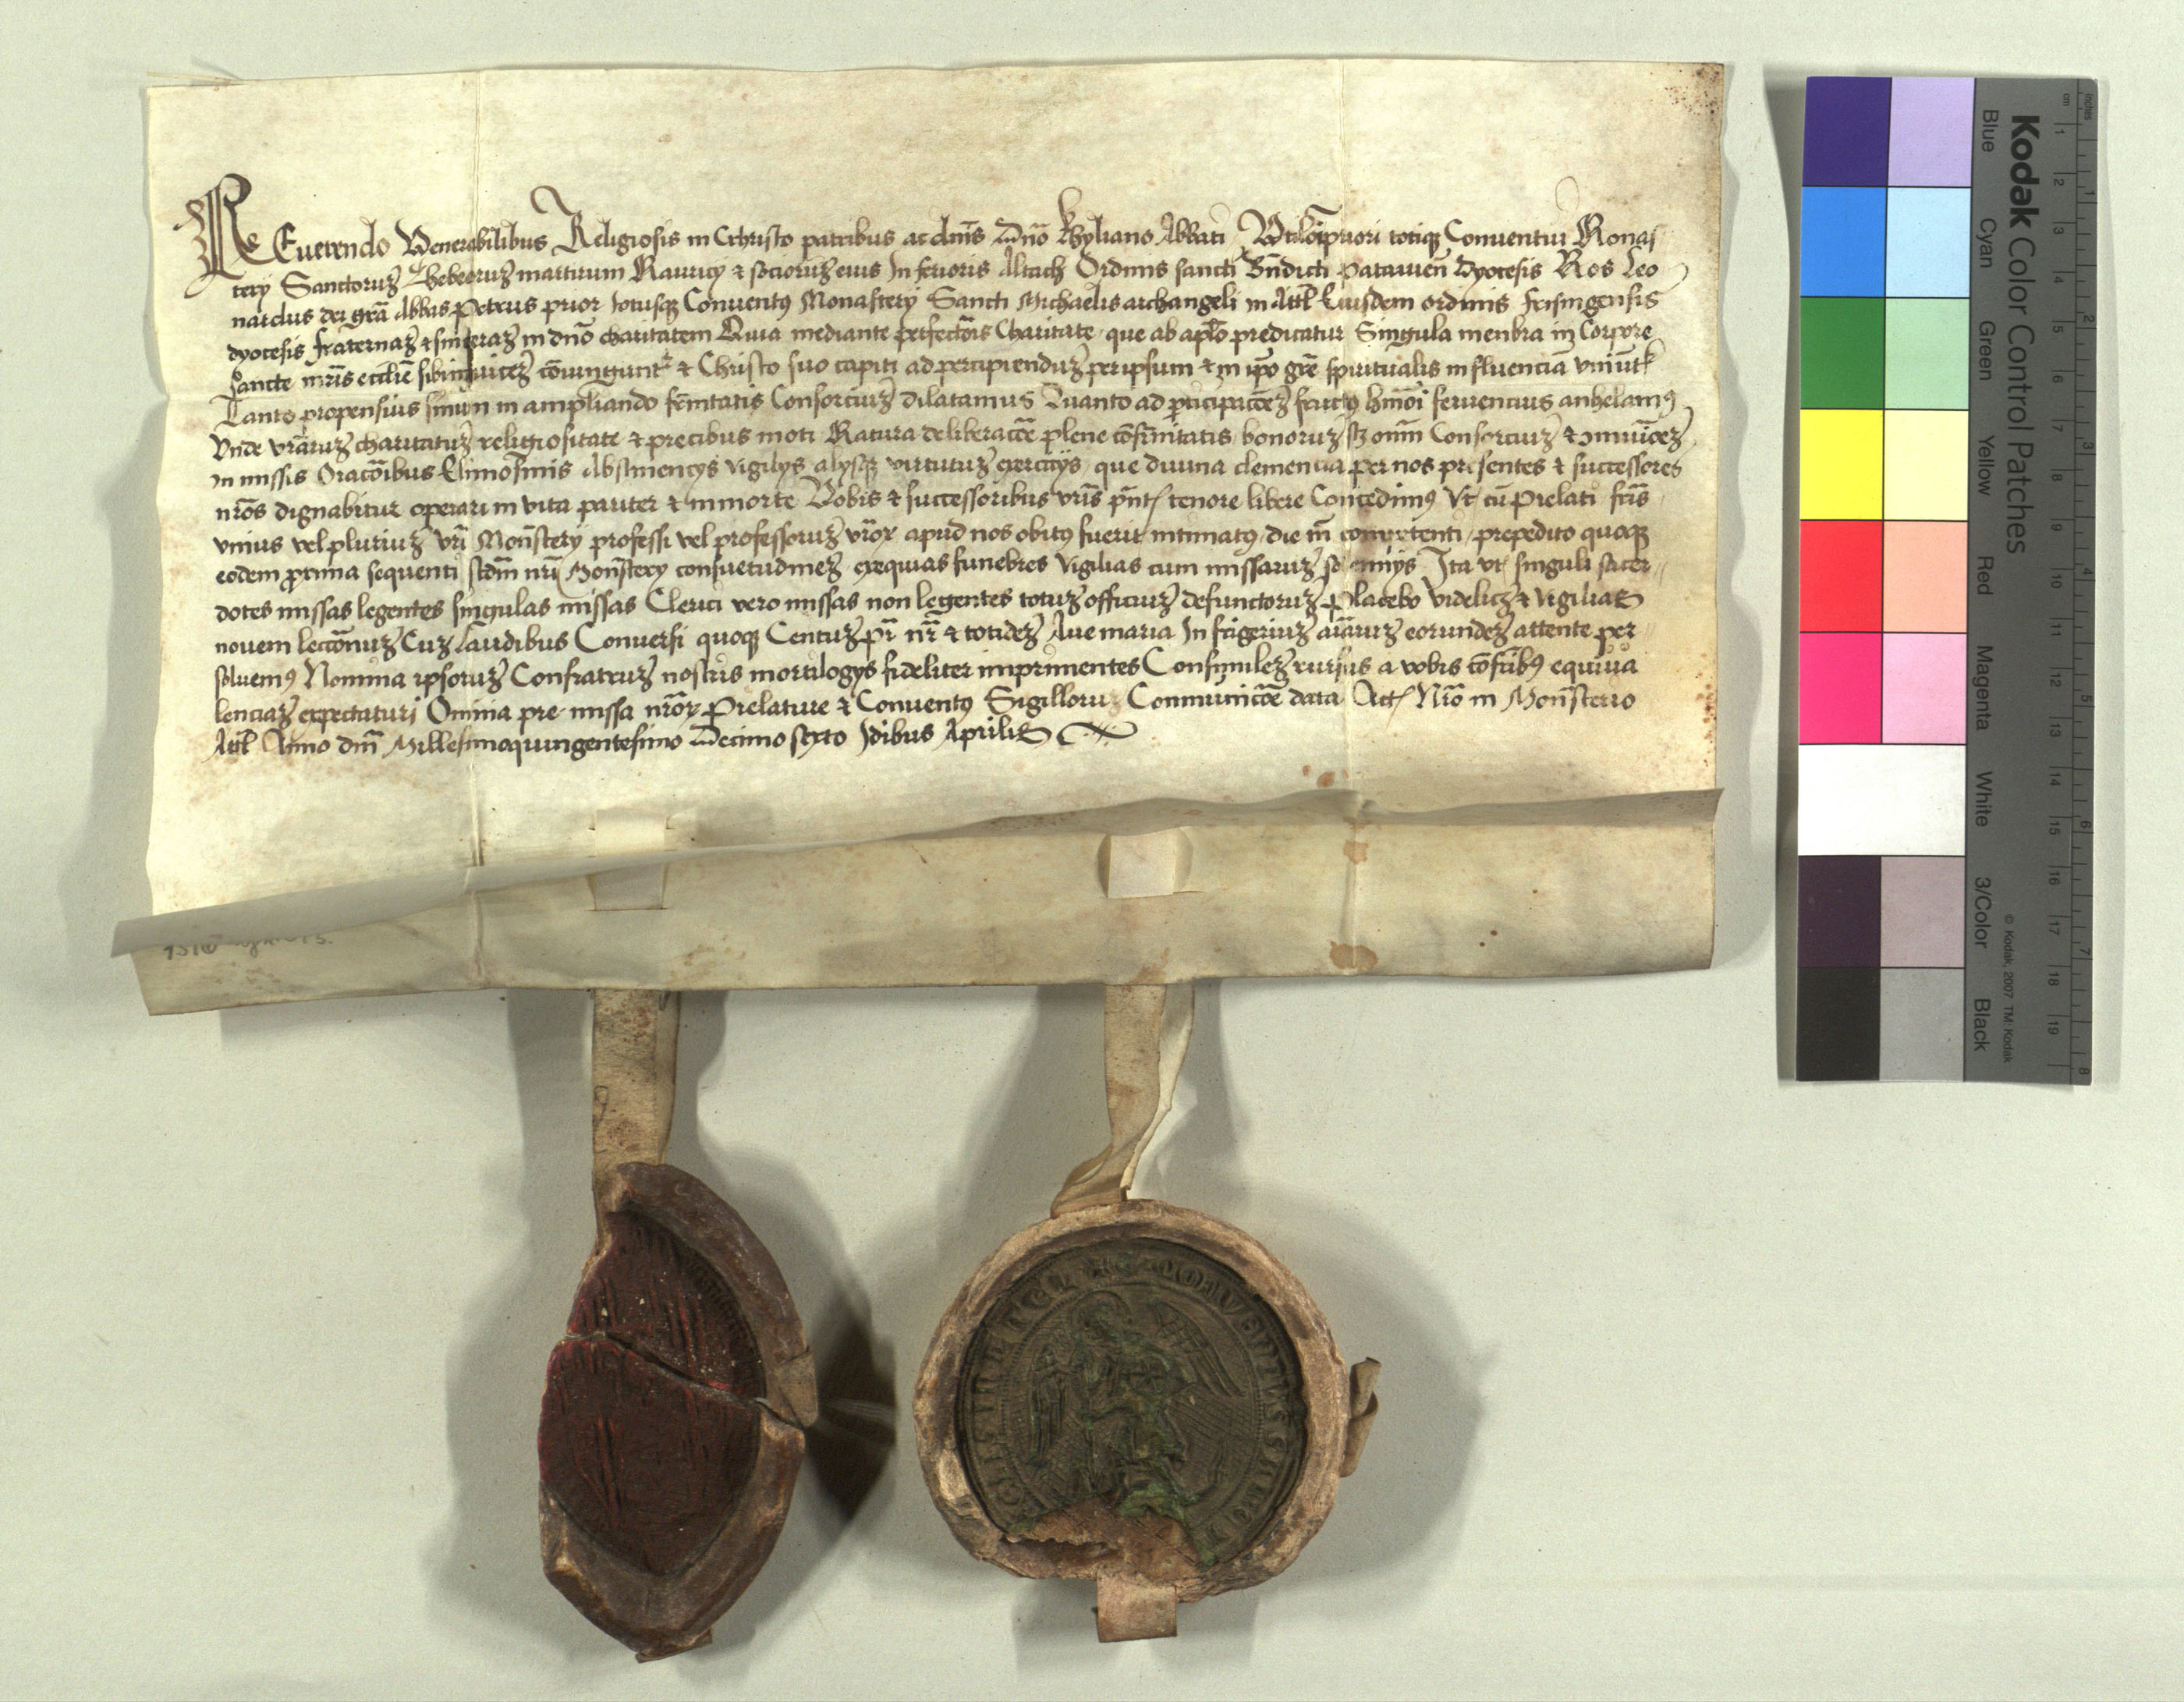 Reuerendo Venerabilibus Religiosis in Cchristo patribus ac dnīs Dnō Kyliano Abbati Priori totiqꝫ Conuentui Monas
tery Sanctoruꝫ Thebeoruꝫ martirum Mauricy & socioruꝫ eius Inferioris Altach Ordinis sancti Bn̄dicti Patauieñ Dyocesis Nos Leo
nardus dei grā Abbas Petrus prior totusqꝫ Conuentꝰ Monastery Sancti Michaelis archangeli in Attl̄ Eiusdem ordinis frisingensis
dyocesis fraternaꝫ & sinceraꝫ in dnō charitatem Quia mediante perfectōris Charitate que ab aplō predicatur Singula menbra in Corpore
sancte mr̄is ecclīe sibiinuiceꝫ cōiungunt᷑ & Christo suo capiti ad percipienduꝫ per ipsum & in ipō grē spiritualis influenciā vniūt᷑
Tanto propensius sinum in ampliando fr̄nitatis Consorciuꝫ dilatamus Quanto ad ꝑticipacōeꝫ fructꝰ hmōi feruencius anhelamꝰ
Vnde vrāruꝫ charitatuꝫ religiositate & precibus moti Matura deliberacōe plene cōfr̄nitatis bonoruꝫ sꝫ om̄m Consorciuꝫ &
in missis Oracōibus Elimosinis Abstinencys Vigilys alysqꝫ virtutuꝫ exercitys que diuina clemencia per nos presentes & successores
nrōs dignabitur operari in vita pariter & in morte Vobis & successoribus vrīs pn̄t tenore libere Concedimꝰ Vt cū Prelati frīs
vnius vel pluriuꝫ vrī Mon̄stery professi vel professoruꝫ vrōꝝ apud nos obitꝰ fuerit intimatꝰ die in competenti prepedito quoqꝫ
eodem proxima sequenti scdm nrī Mon̄stery consuetudineꝫ exequias funebres Vigilias cum missaruꝫ solemnys Ita vt singuli sacer
dotes missas legentes singulas missas Clerici vero missas non legentes totuꝫ officiuꝫ defunctoruꝫ Placebo videlicꝫ & Vigilias
nouem lectōnuꝫ Cuꝫ Laudibus Conuersi quoqꝫ Centuꝫ pr̄ nr̄ & totideꝫ Aue maria In frigeriuꝫ aīaruꝫ eorundeꝫ attente per
soluemꝰ Nomina ipsoruꝫ Confratruꝫ nostris mortilogys fideliter imprimentes Consimileꝫ rursus a vobis cōfrībꝰ equiua
lenciaꝫ expectaturi Omnia pre missa nrōꝝ Prelature & Conuentꝰ Sigilloru Communicōe data Act Nrō in Mon̄sterio
Attl̄ Anno dnī Millesimoquingentesimo Decimo sexto Idibus Aprilis
1516
Kodak Color Control Patches
Blue Cyan Green Yellow Red Magenta White 3/Color Black
© Kodak, 2007 TM: Kodak
cm 1 2 3 4 5 6 7 8 9 10 11 12 13 14 15 16 17 18 19
inches 1 2 3 4 5 6 7 8